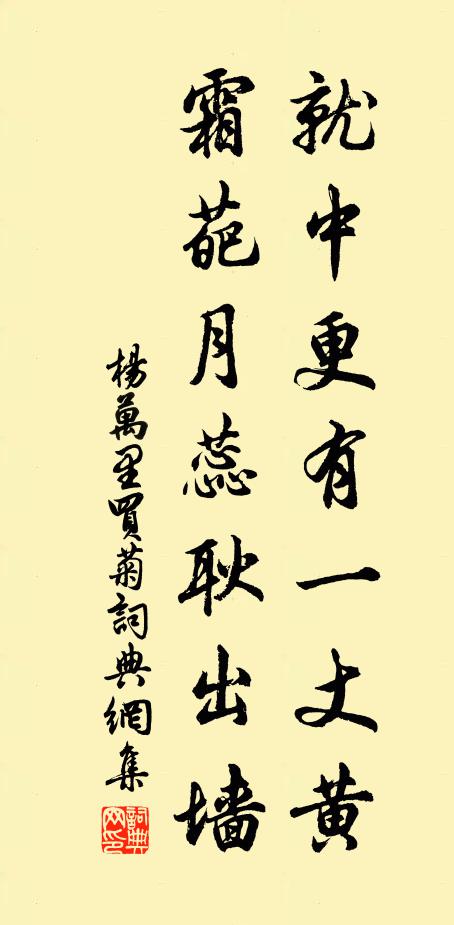 就中更有一丈黄
霜葩月蕊耿出墙
楊萬里買菊詞典網集
詞典網印